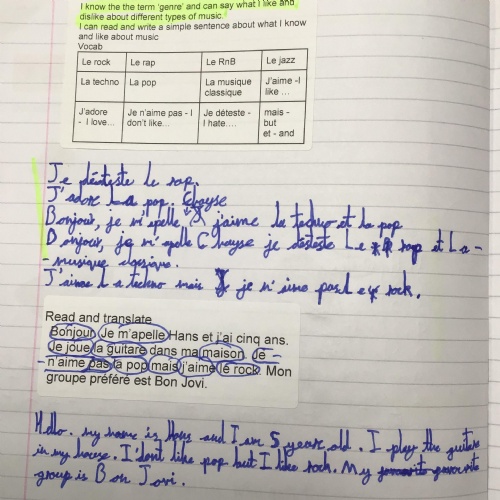 I know the the term 'genre' and can say what I like and
dislike about different types of music.
I can read and write a simple sentence about what I know
and like about music
Vocab
Le rock Le rap Le RnB Le jazz
La techno La pop La musique classique J'aime -I like ...
J'adore - I love... Je n'aime pas - I don't like... Je déteste - I hate.... mais - but et - and
Je déteste le rap.
J'adore la pop. Chayse
Bonjour, je m'apelle j'aime la techno et la pop
Bonjour, je m'apelle Chayse je déteste Le rap et La -
- musique classique.
J'aime la techno mais je n'aime pas Le rock.
Read and translate
Bonjour Je m'apelle Hans et j'ai cinq ans.
Je joue la guitare dans ma maison. Je
n'aime pas la pop mais j'aime le rock. Mon
groupe préféré est Bon Jovi.
Hello. my name is Hans and I am 5 years old. I play the guitare
in my house. I don't like pop but I like rock. My favourite
group is Bon Jovi.